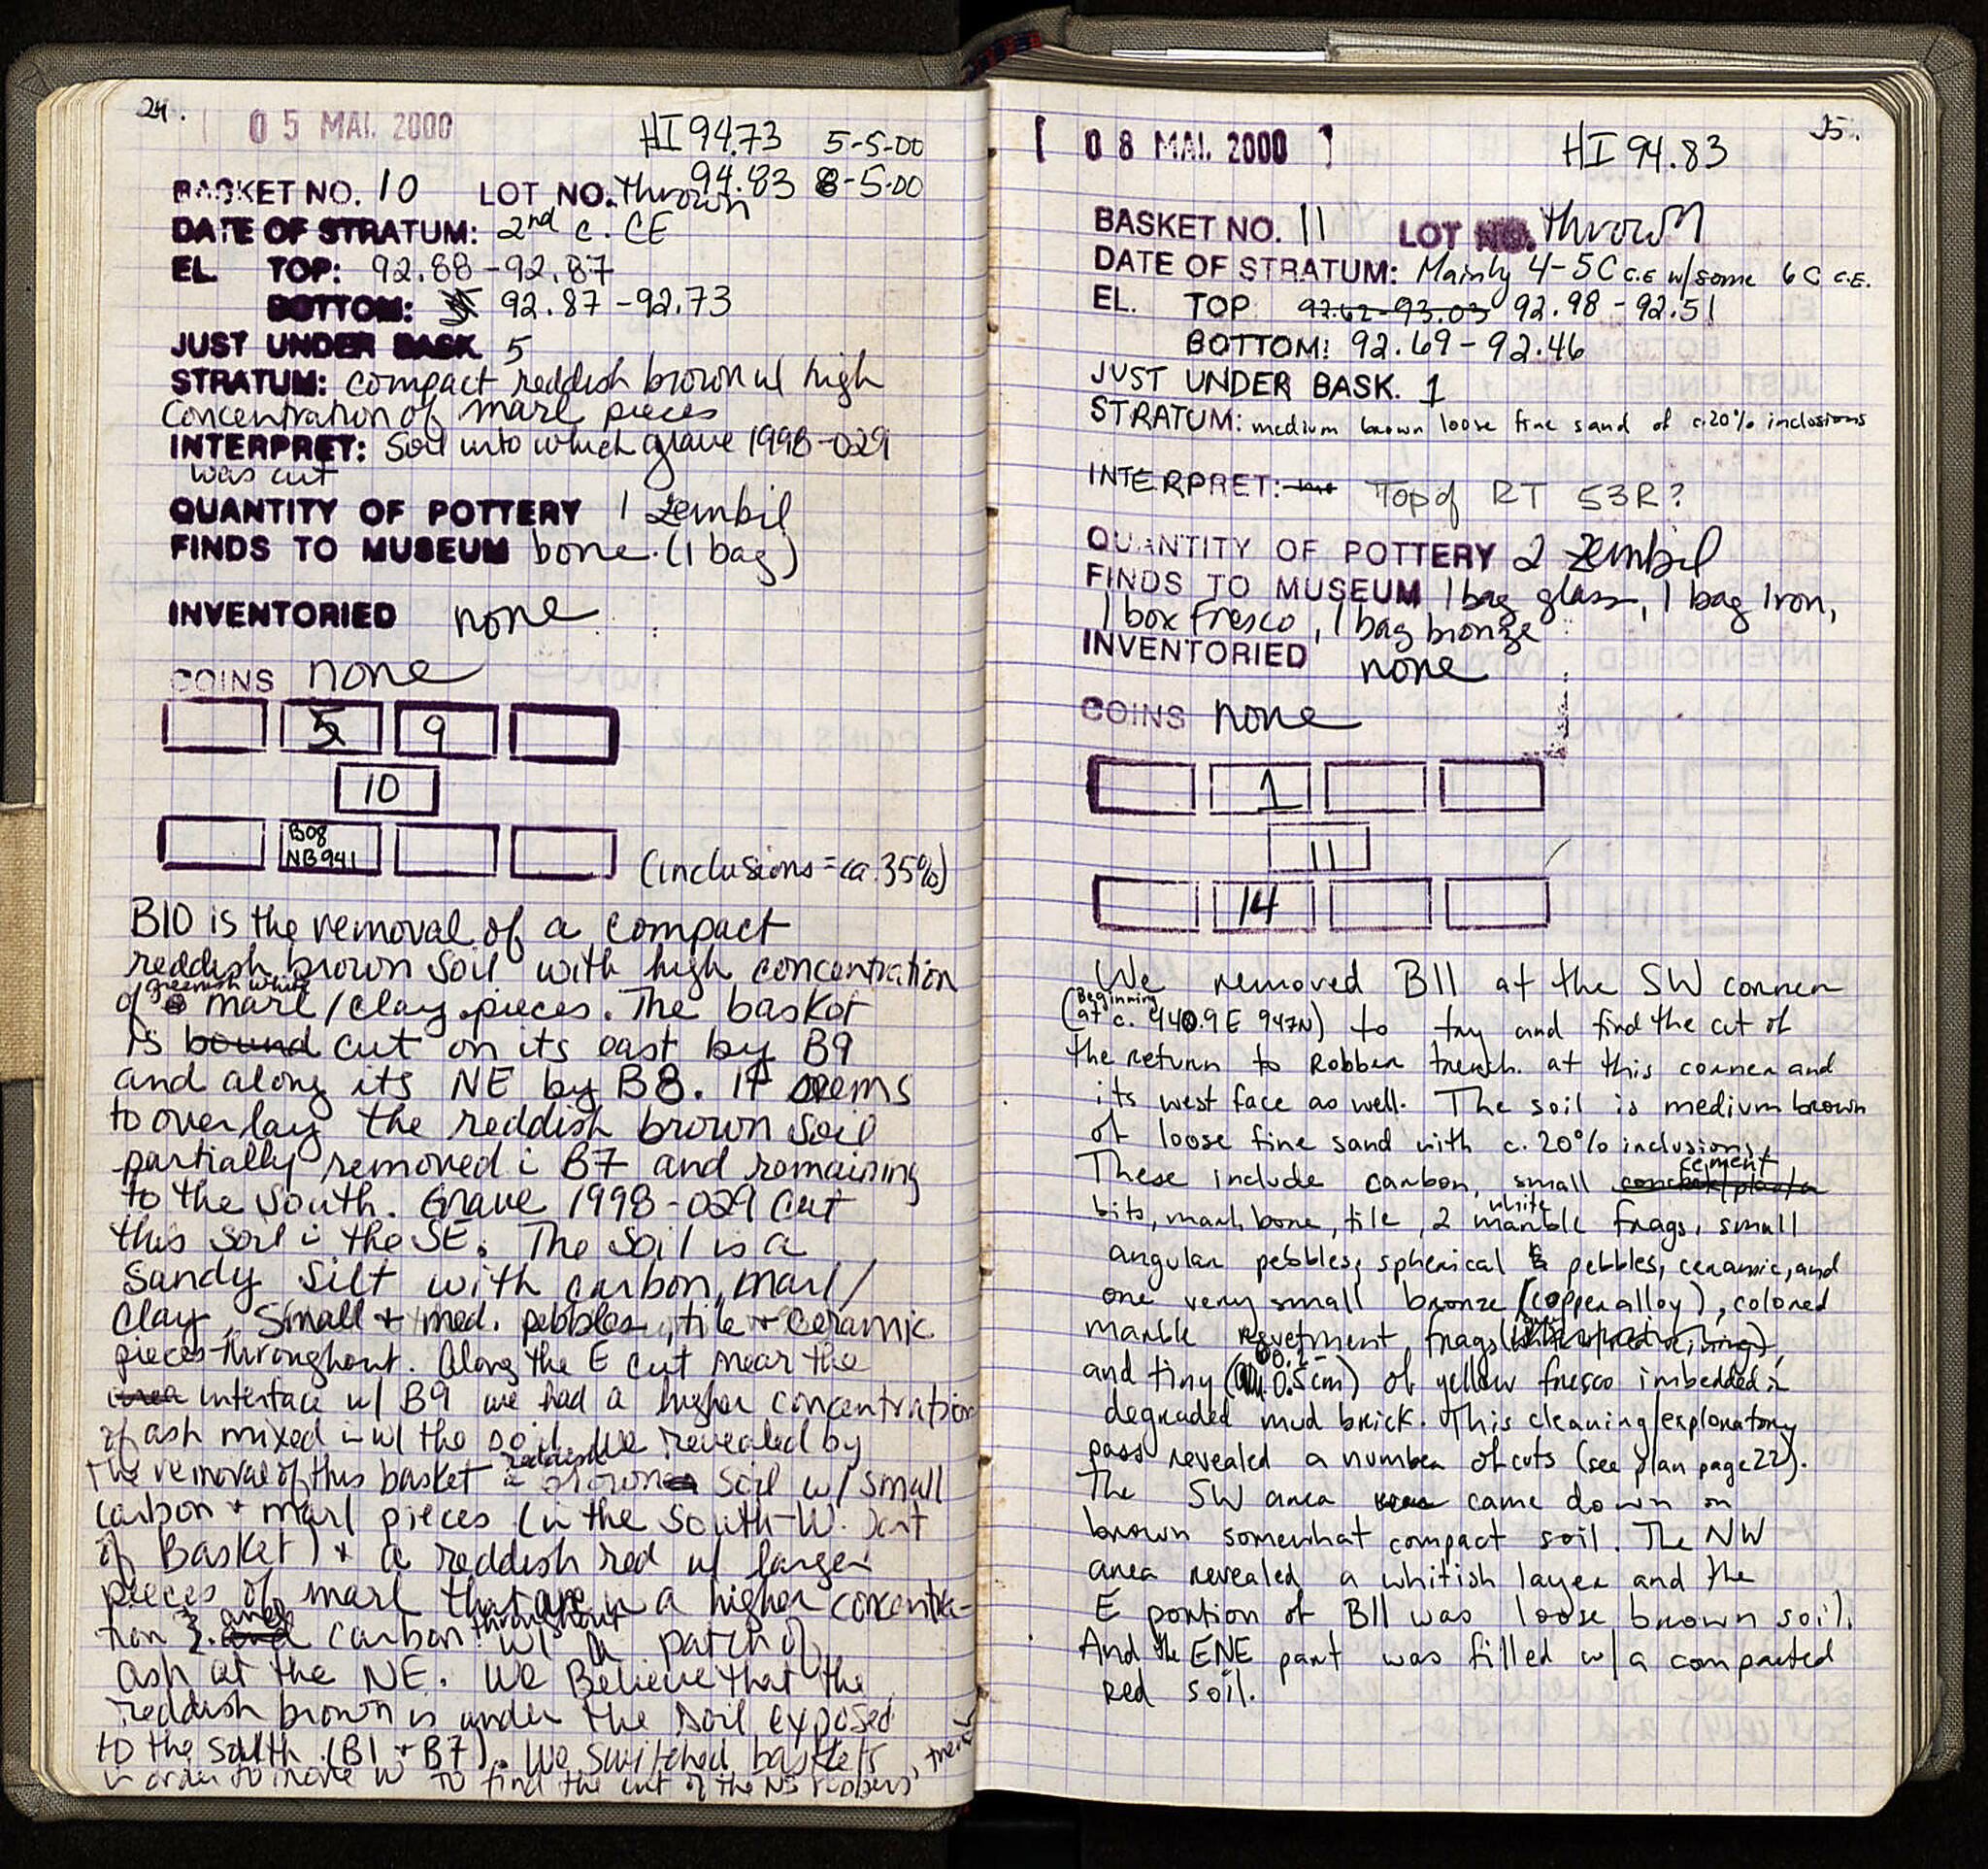 24.
05 MAI. 2000
HI 94.73 5-5-00
94.83 8-5-00
BASKET NO. 10 LOT NO. thrown
DATE OF STRATUM: 2nd c. CE
EL TOP: 92.88-92.87
BOTTOM: 92.87-92.73
JUST UNDER BASK 5
STRATUM: compact reddish brown w/ high
concentration of marl pieces
INTERPRET: Soil into which grave 1998-029
was cut
QUANTITY OF POTTERY 1 zembil
FINDS TO MUSEUM bone (1 bag)
INVENTORIED none
COINS none
5 9
10
B08
NB941
(inclusions = ca. 35%)
B10 is the removal of a compact
reddish brown soil with high concentration
of greenish white marl/clay pieces. The basket
is bound cut on its east by B9
and along its NE by B8. It seems
to overlay the reddish brown soil
partially removed i B7 and remaining
to the south. Grave 1998-029 cut
this soil i the SE. The soil is a
sandy silt with carbon, marl/
clay, small + med. pebbles, tile + ceramic
pieces throughout. Along the E cut near the
interface w/ B9 we had a higher concentration
of ash mixed in w/ the soil. We revealed by
the removal of this basket a reddish brown soil w/ small
carbon + marl pieces (in the South-W. part
of Basket) + a reddish red w/ larger
pieces of marl that are in a higher concentra-
tion and carbon throughout w/ a patch of
ash at the NE. We Believe that the
reddish brown is under the soil exposed
to the south (B1 + B7). We switched baskets
in order to move W to find the cut of the NS robbers' trench
25.
08 MAI. 2000
HI 94.83
BASKET NO. 11 LOT NO. thrown
DATE OF STRATUM: Mainly 4-5C C.E w/some 6C C.E.
EL. TOP 92.62-93.03 92.98-92.51
BOTTOM: 92.69-92.46
JUST UNDER BASK. 1
STRATUM: medium brown loose fine sand of c.20% inclusions
INTERPRET: Top of RT 53R?
QUANTITY OF POTTERY 2 zembil
FINDS TO MUSEUM 1 bag glass, 1 bag Iron,
1 box Fresco, 1 bag bronze
INVENTORIED none
COINS none
1
11
14
We removed B11 at the SW corner
(Beginning at c. 440.9E 947N) to try and find the cut of
the return to Robber trench at this corner and
its west face as well. The soil is medium brown
of loose fine sand with c. 20% inclusions.
These include carbon, small cement
bits, marl, bone, tile, 2 white marble frags, small
angular pebbles, spherical pebbles, ceramic, and
one very small bronze (copper alloy), colored
marble revetment frags
and tiny (0.5cm) of yellow fresco imbedded i
degraded mud brick. This cleaning/exploratory
pass revealed a number of cuts (see plan page 22).
The SW area was came down on
brown somewhat compact soil. The NW
area revealed a whitish layer and the
E portion of B11 was loose brown soil.
And the ENE part was filled w/ a compacted
red soil.